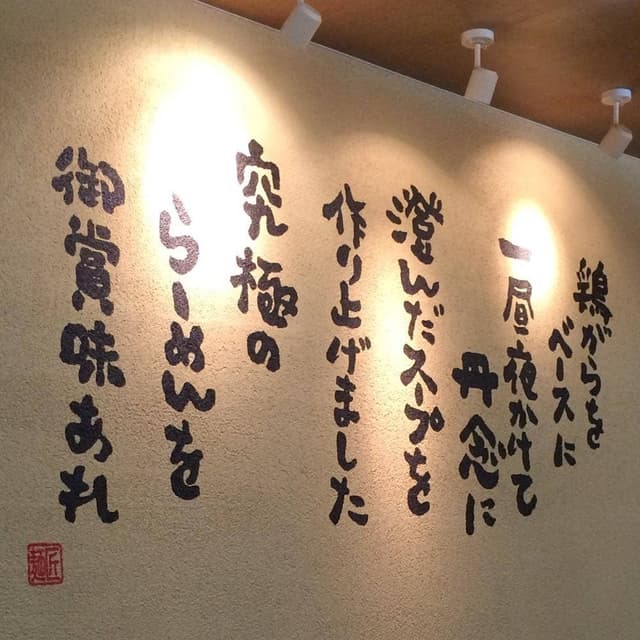 鶏がらを
ベースに
一昼夜かけて
丹念に
澄んだスープを
作り上げました
究極の
らーめんを
御賞味あれ
匠麺